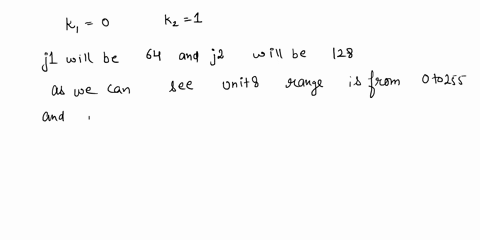 k₁ = 0 k₂ = 1
j1 will be 64 and j2 will be 128
as we can see unit8 range is from 0 to 255
and